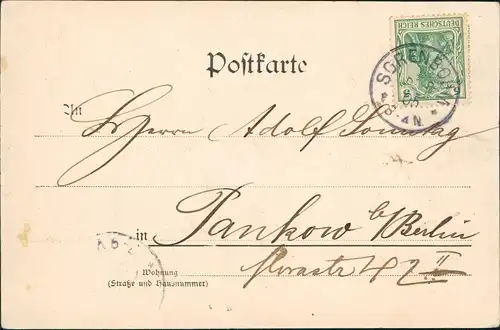 DEUTSCHES REICH
SORENBOHM
Postkarte
An
Herrn Adolf Sonntag
in Pankow b/Berlin
Wohnung
(Straße und Hausnummer)
Florastr 42 II